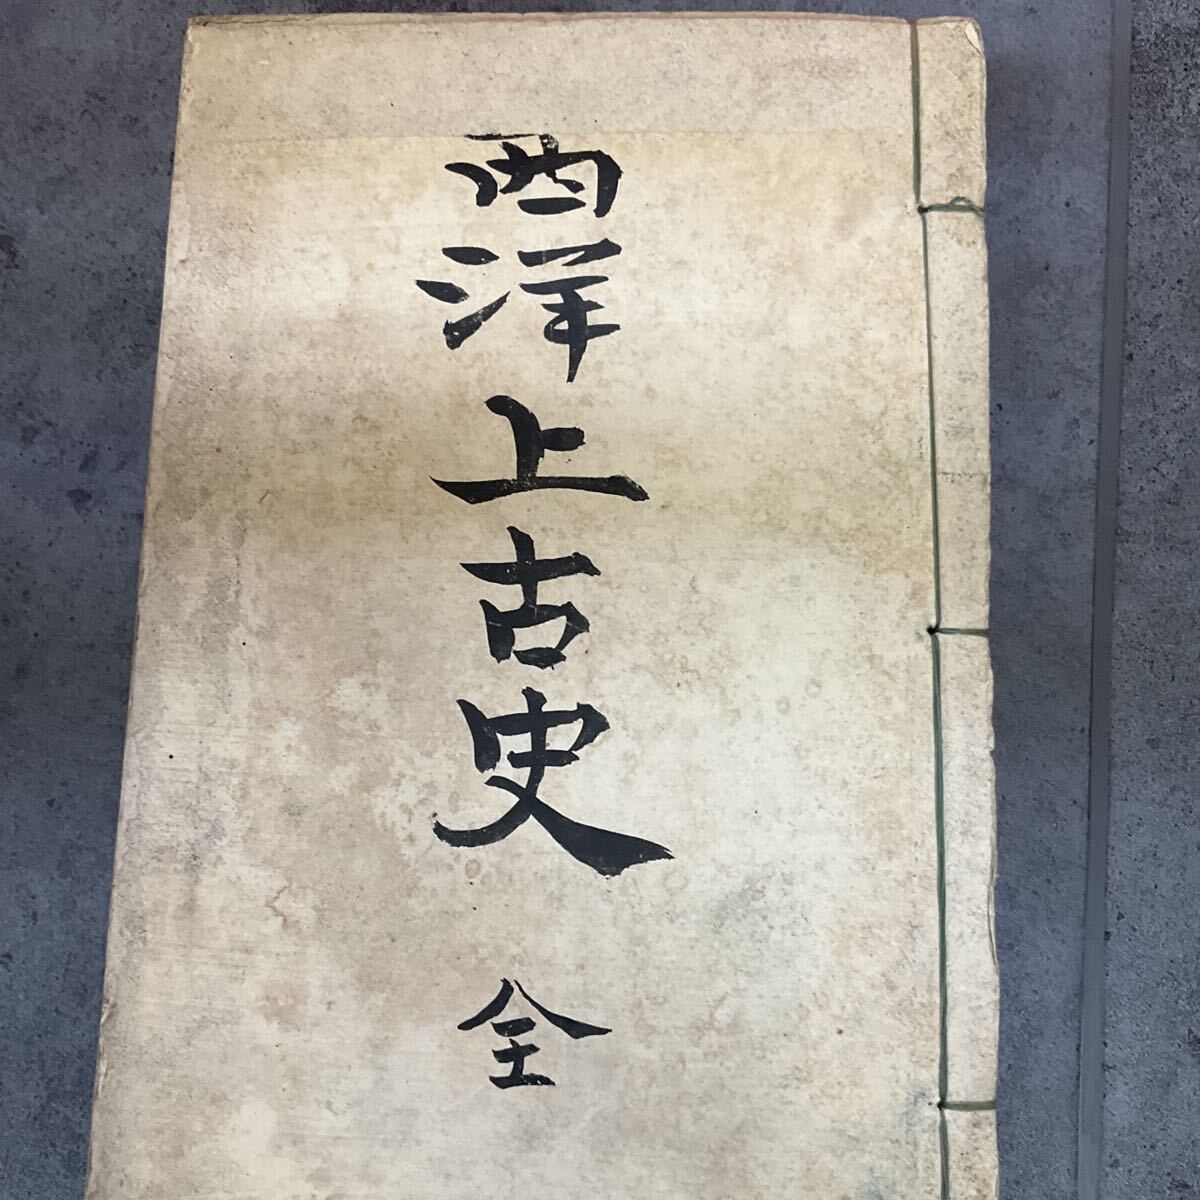 西洋上古史 全